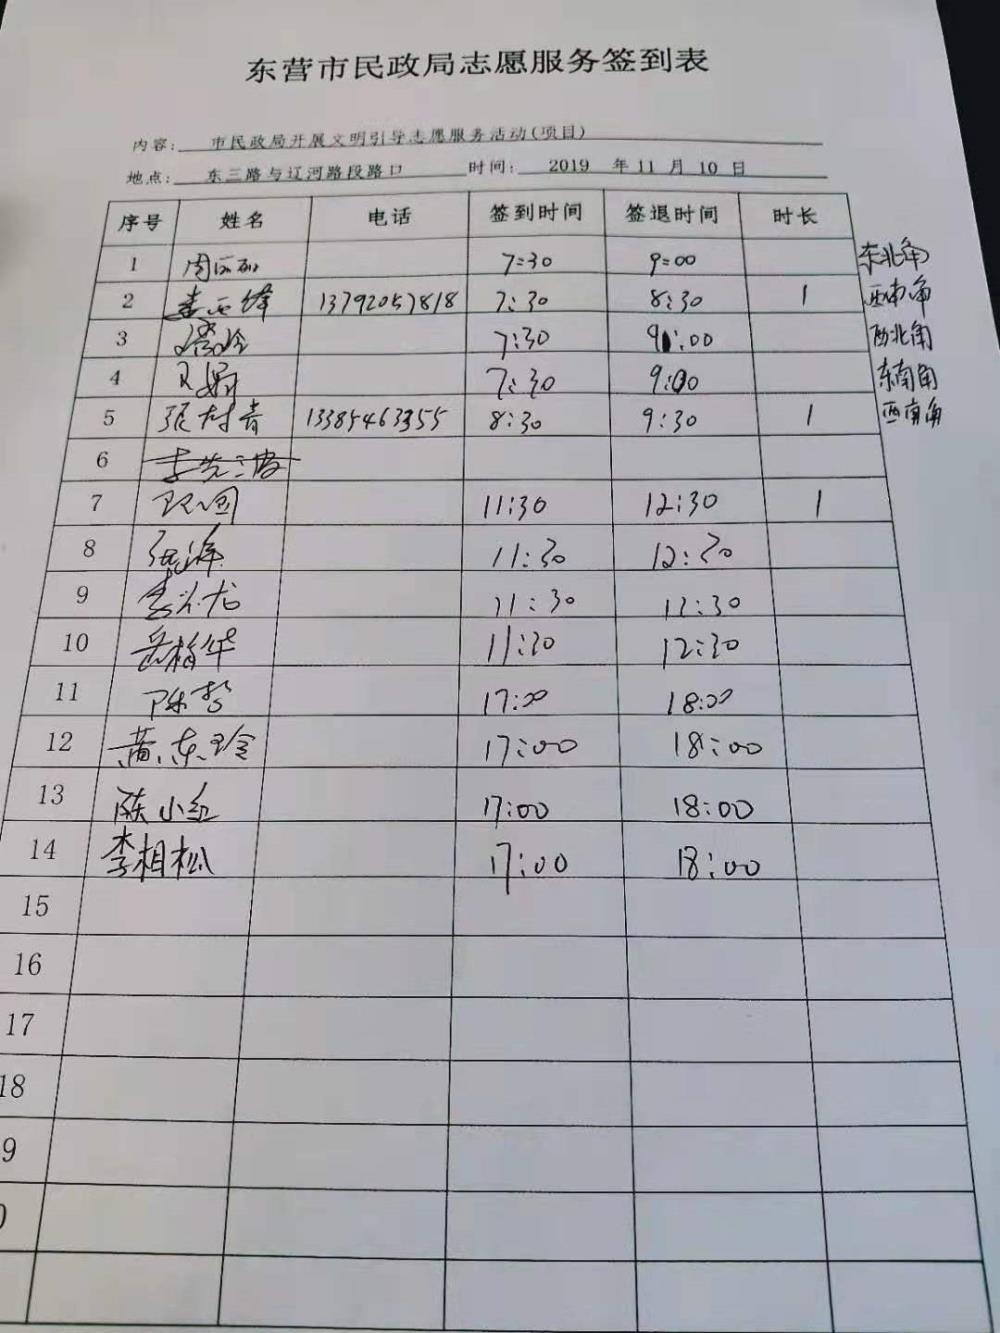 东营市民政局志愿服务签到表
内容: 市民政局开展文明引导志愿服务活动(项目)
地点: 东三路与辽河路段路口 时间: 2019 年 11 月 10 日
序号 姓名 电话 签到时间 签退时间 时长
1 7:30 9:00 东北角
2 13792057818 7:30 8:30 1 西南角
3 7:30 9:00 西北角
4 7:30 9:00 东南角
5 张村青 13385463355 8:30 9:30 1 西南角
6
7 11:30 12:30 1
8 11:30 12:30
9 11:30 12:30
10 岳梅华 11:30 12:30
11 陈哲 17:00 18:00
12 黄东玲 17:00 18:00
13 陈小红 17:00 18:00
14 李相松 17:00 18:00
15
16
17
18
9
0